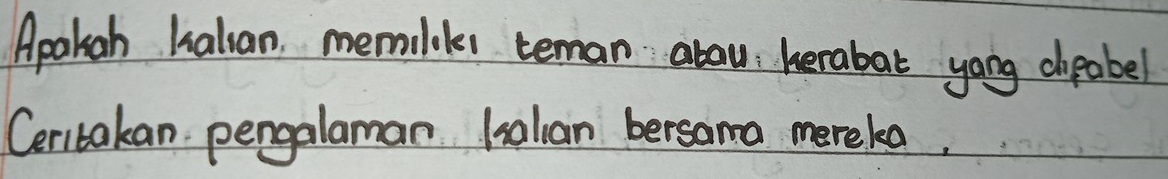 Apakah kalian memiliki teman atau kerabat yang difabel
Ceritakan pengalaman kalian bersama mereka.